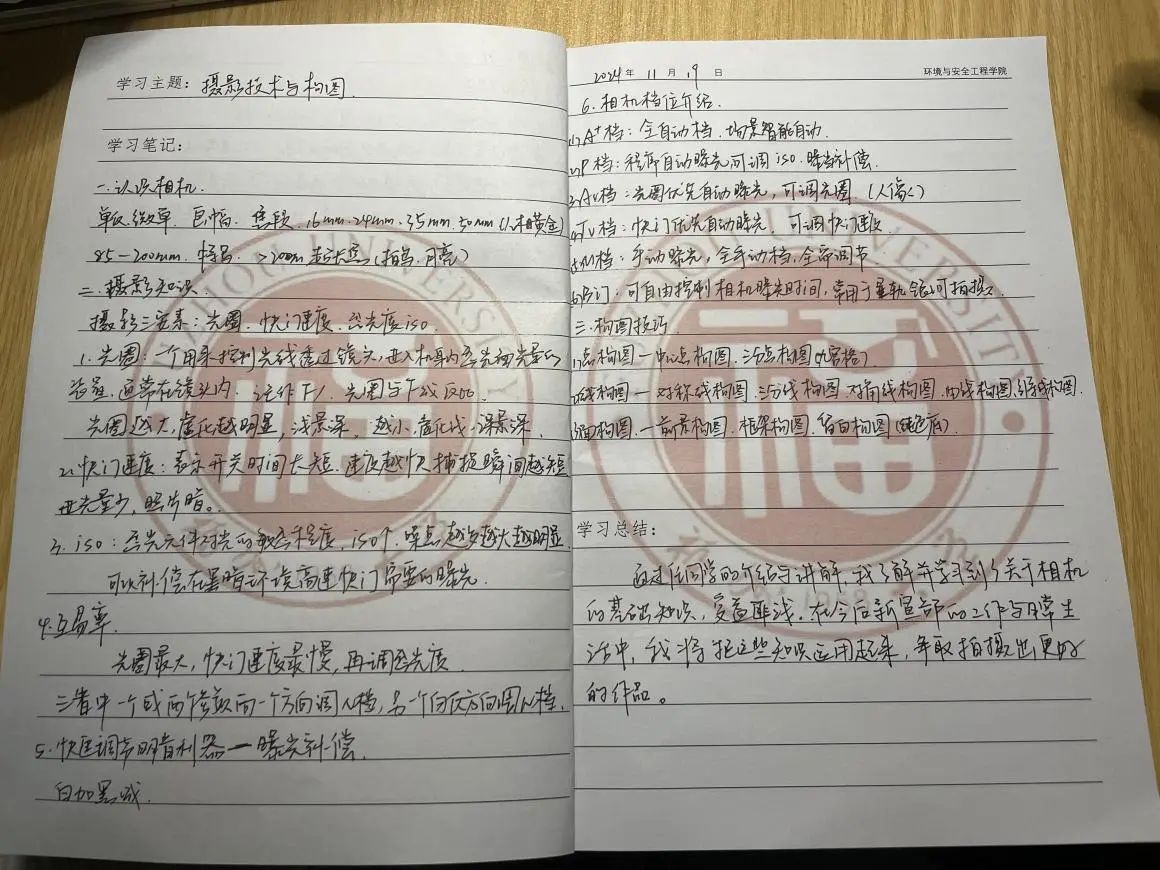 学习主题：摄影技术与构图.
学习笔记：
一.认识相机.
单反.微单. 画幅. 焦段. 16mm.24mm.35mm.50mm(人相黄金)
85-200mm. >200mm 超长焦(拍鸟.月亮)
二.摄影知识.
摄影三要素：光圈. 快门速度. 感光度iso.
1.光圈：一个用来控制光线透过镜头,进入机身内感光面光量的
装置,通常在镜头内. 记作F/. 光圈与F成反比.
光圈越大,虚化越明显,浅景深. 越小.虚化浅.深景深.
2.快门速度：表示开关时间长短.速度越快捕捉瞬间越短
进光量少,照片暗。
3. iso：感光元件对光的敏感程度,iso↑.噪点越多越大越明显.
可以补偿在黑暗环境高速快门需要的曝光.
4.互易率.
光圈最大,快门速度最慢,再调感光度.
三者中一个或两个参数向一个方向调N档,另一个向反方向调N档.
5.快速调节明暗利器—曝光补偿.
白加黑减.
2024年 11月 19日
环境与安全工程学院
6.相机档位介绍.
(1)A+档：全自动档.场景智能自动.
(2)P档：程序自动曝光可调iso.曝光补偿.
(3)Av档：光圈优先自动曝光,可调光圈. (人像)
(4)Tv档：快门优先自动曝光. 可调快门速度
(5)M档：手动曝光,全手动档,全部调节.
(6)B门：可自由控制相机曝光时间,常用于星轨.银河拍摄.
三.构图技巧.
(1)点构图—中心点构图.三分点构图(九宫格)
(2)线构图—对称线构图.三分线构图.对角线构图.曲线构图.引导线构图.
(3)面构图.—前景构图.框架构图.留白构图(纯色底).
学习总结：
通过任同学的介绍与讲解,我了解并学习到了关于相机
的基础知识,受益匪浅.在今后新宣部的工作与日常生
活中,我将把这些知识运用起来,争取拍摄出更好
的作品。
FUZHOU UNIVERSITY